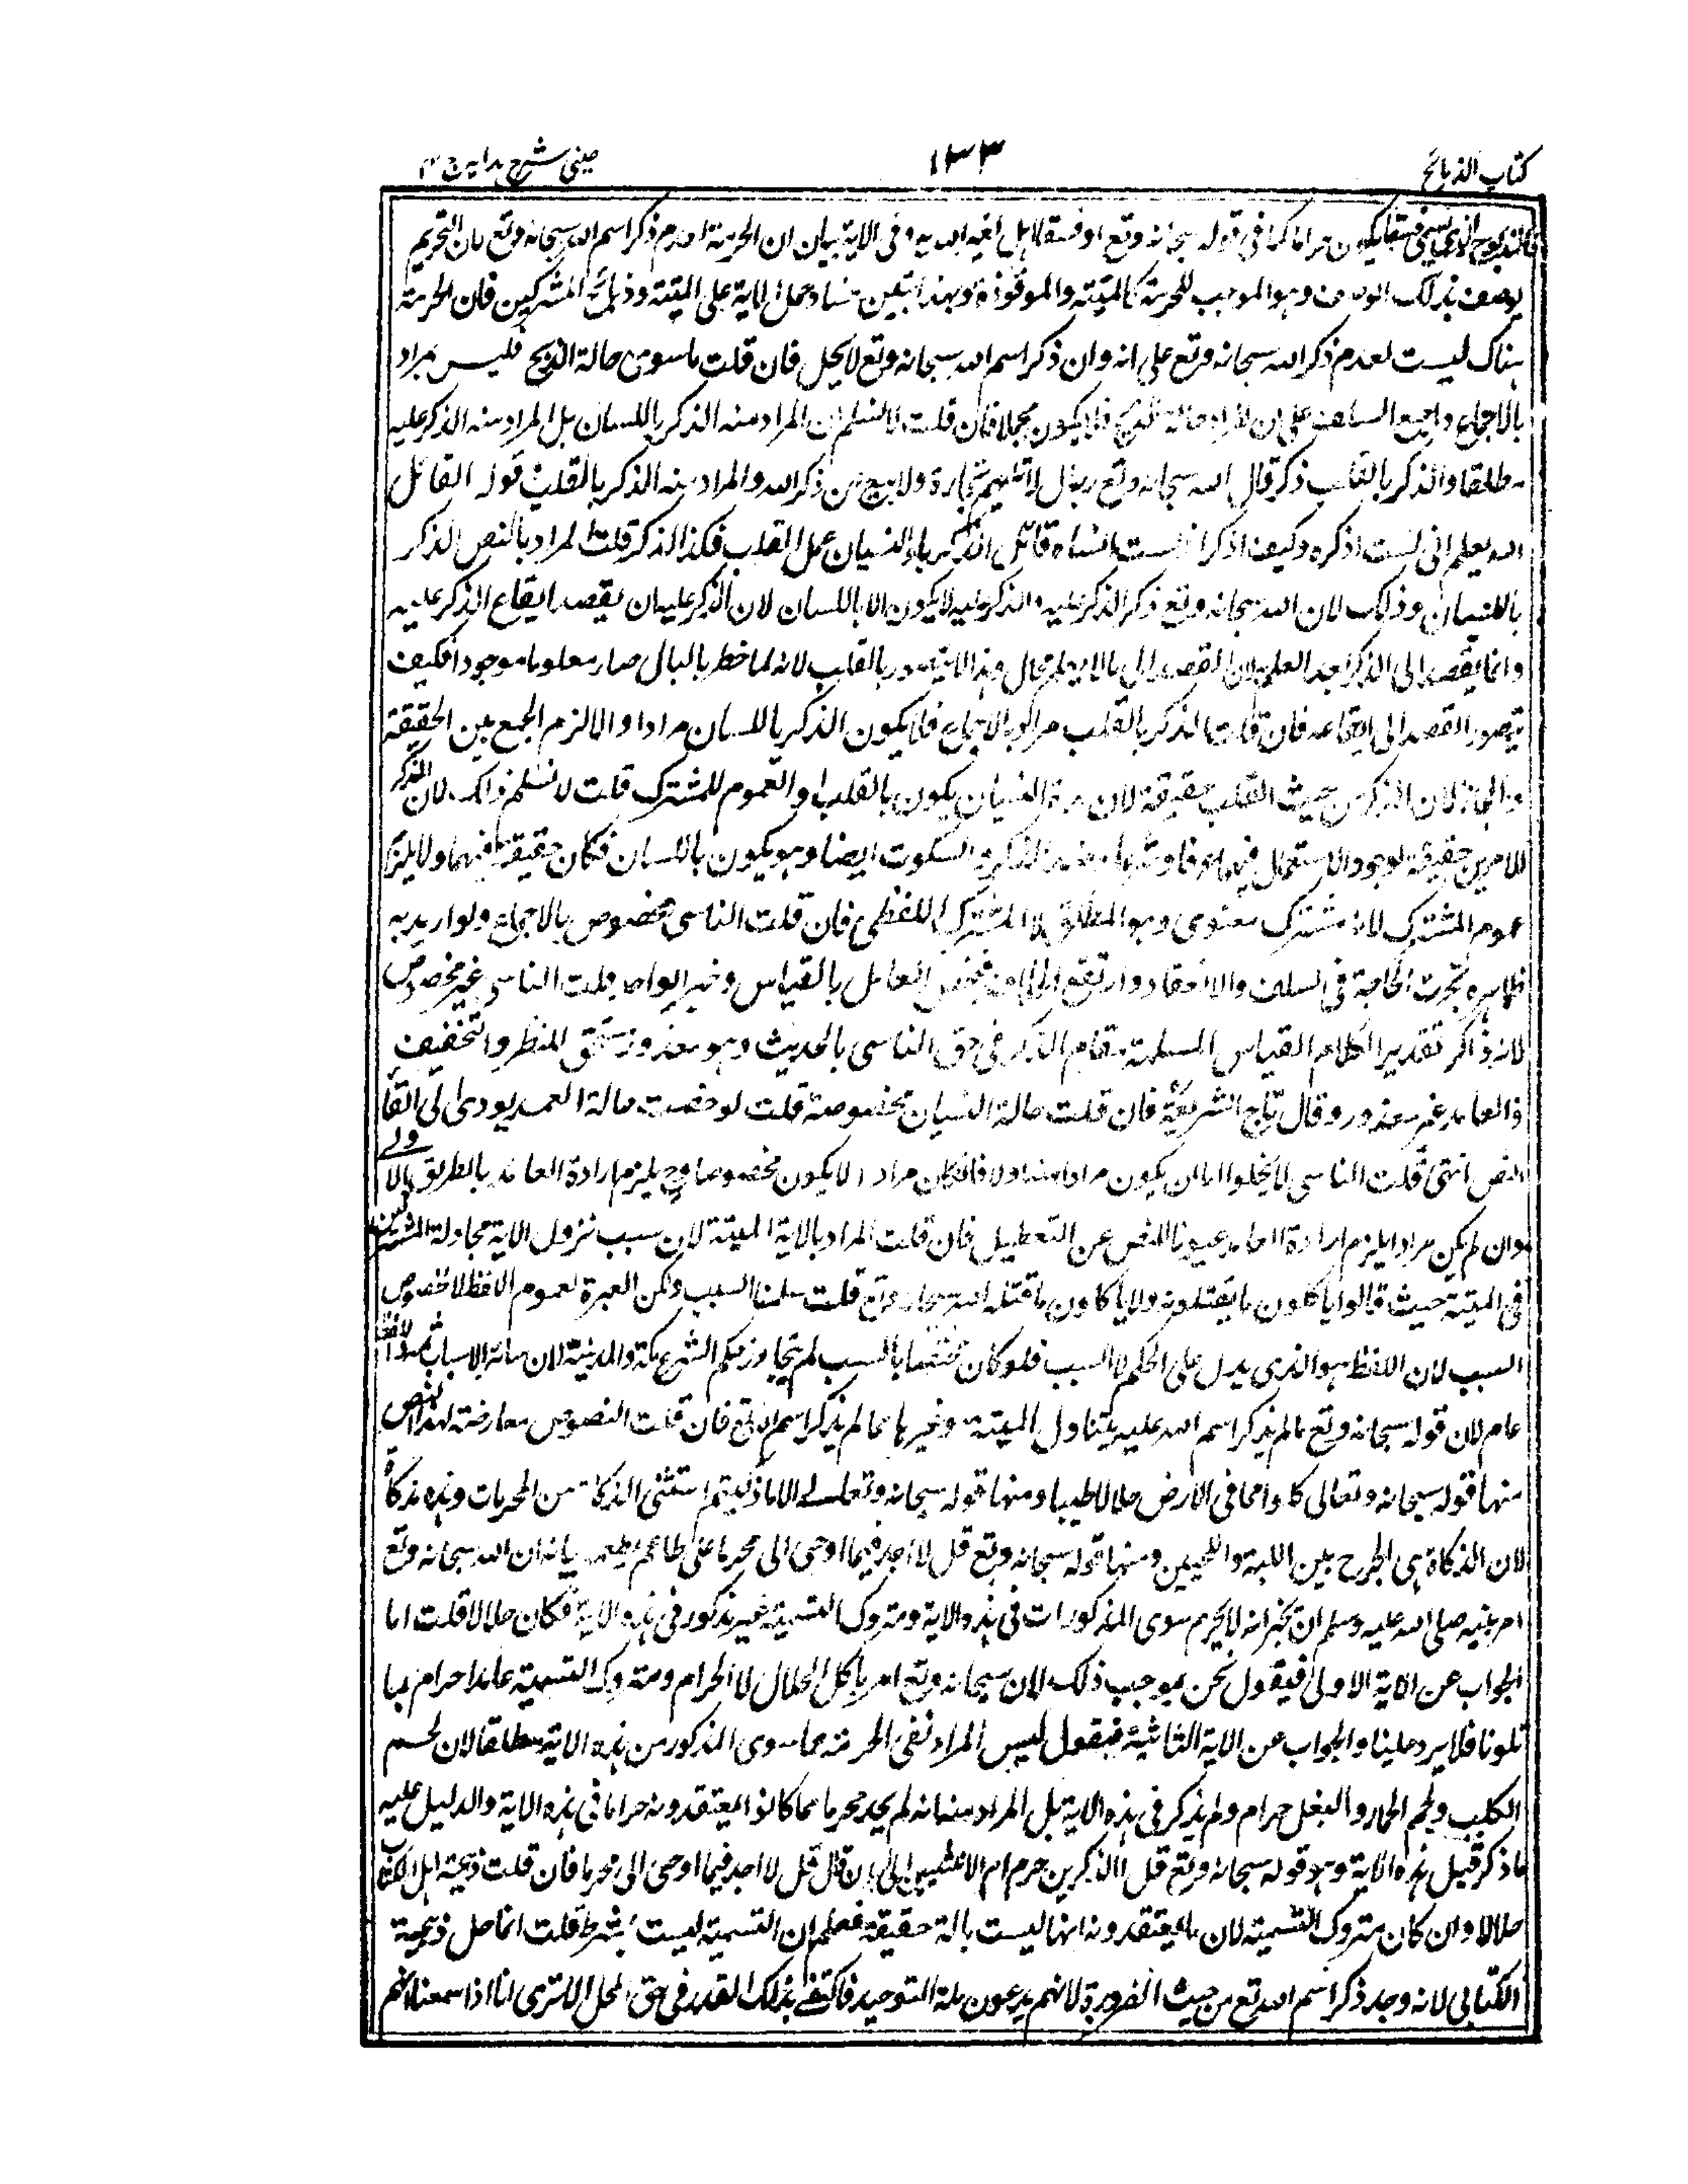 كتاب الذبائح
١٣٣
عينى شرح هدايه ج ٤
فالمذبوح الذى يسمى فسقا يكون حراما كما فى قوله سبحانه وتع او فسقا اهل لغير الله به وفى الاية بيان ان الحرمة لعدم ذكر اسم الله سبحانه وتع لان التحريم
يوصف بذلك الوصف وهو الموجب للحرمة كالميتة والموقوذة وبهذا تبين فساد حمل الاية على الميتة وذبائح المشركين فان الحرمة
هناك ليست لعدم ذكر الله سبحانه وتع على انه وان ذكر اسم الله سبحانه وتع لا يحل فان قلت ما سوى حالة الذبح فليس بمراد
بالاجماع واجمع السلف على ان المراد حالة الذبح فلا يكون مجملا فان قلت لا نسلم ان المراد منه الذكر باللسان بل المراد منه الذكر عليه
مطلقا والذكر بالقلب ذكر قال الله سبحانه وتع رجال لا تلهيهم تجارة ولا بيع عن ذكر الله والمراد منه الذكر بالقلب قوله القائل
الله يعلم انى لست اذكره وكيف اذكر اذ لست انساه قائل الذكر باو النسيان عمل القلب فكذا الذكر قلت المراد بالنص الذكر
باللسان وذلك لان الله سبحانه وتع ذكر الذكر عليه والذكر عليه لا يكون الا باللسان لان الذكر عليه ان يقصد ايقاع الذكر عليه
وانما يقصد الى الذكر بعد العلم لان القصد الى ما لا يعلم محال وهذا لا يتصور بالقلب لانه لما خطر بالبال صار معلوما موجودا فكيف
يتصور القصد الى ايقاعه فان قلت الذكر بالقلب مراد بالاجماع فلا يكون الذكر باللسان مرادا والا لزم الجمع بين الحقيقة
والمجاز لان الذكر من حيث القلب حقيقة لان ضده النسيان يكون بالقلب او العموم للمشترك قلت لا نسلم ذلك لان الذكر
للامرين حقيقة لوجود الاستعمال فيهما عرفا وشرعا وضد الذكر السكوت ايضا وهو يكون باللسان فكان حقيقة فيهما ولا يلزم
عموم المشترك لانه مشترك معنوى وهو المطلق لا المشترك اللفظى فان قلت الناسى مخصوص بالاجماع ولو اريد به
ظاهره لجرت المحاجة فى السلف والانقياد وارتفع الخلاف فيخص العامل بالقياس وخبر الواحد قلت الناسى غير مخصوص
لانه ذاكر تقديرا لكلامه القياس المسلمة مقام الذكر فى حق الناسى بالحديث وهو معذور يستحق للنظر والتخفيف
فالعامد غير معذور وقال تاج الشريعة فان قلت حالة النسيان مخصوصة قلت لو خصت حالة العمد يودى الى القاء
النص انتهى قلت الناسى لا يخلوا اما ان يكون مرادا منه او لا فان كان مرادا لا يكون مخصوصا وح يلزم ارادة العامد بالطريق الاولى
وان لم يكن مرادا يلزم ارادة العامد صونا للنص عن التعطيل فان قلت المراد بالاية الميتة لان سبب نزول الاية مجادلة المشركين
فى الميتة حيث قالوا ياكلون ما يقتلونه ولا ياكلون ما قتله الله سبحانه وتع قلت سلمنا السبب ولكن العبرة لعموم اللفظ لا خصوص
السبب لان اللفظ هو الذى يدل على الحكم لا السبب فلو كان مختصا بالسبب لم يتجاوز حكم الشرع مكة والمدينة لان سائر الاسباب ثمه واللفظ
عام لان قوله سبحانه وتع مالم يذكر اسم الله عليه يتناول الميتة وغيرها مما لم يذكر اسم الله تع فان قلت النصوص معارضة لهذا النص
منها قوله سبحانه وتعالى كلوا مما فى الارض حلالا طيبا ومنها قوله سبحانه وتعالى الا ما ذكيتم استثنى الذكاة من المحرمات وهذه ذكاة
لان الذكاة هى الجرح بين اللبة واللحيين ومنها قوله سبحانه وتع قل لا اجد فيما اوحى الى محرما على طاعم يطعمه بيانه ان الله سبحانه وتع
امر نبيه صلى الله عليه وسلم ان يخبر انه لا يحرم سوى المذكورات فى هذه الاية ومتروك التسمية غير مذكور فى هذه الاية فكان حلالا قلت اما
الجواب عن الاية الاولى فيقول نحن بموجب ذلك لان سبحانه وتع امر باكل الحلال لا الحرام ومتروك التسمية عامدا حرام بما
تلونا فلا يرد علينا والجواب عن الاية الثانية فيقول ليس المراد نفى الحرمة عما سوى المذكور من هذه الاية مطلقا لان لحم
الكلب ولحم الحمار والبغل حرام ولم يذكر فى هذه الاية بل المراد منها انه لم يجد محرما مما كانوا يعتقدونه حراما فى هذه الاية والدليل عليه
ما ذكر قبل هذه الاية وهو قوله سبحانه وتع قل آلذكرين حرم ام الانثيين الى ان قال قل لا اجد فيما اوحى الى محرما فان قلت ذبيحة اهل الكتاب
حلالا وان كان متروك التسمية لان ما يعتقدونه انها ليست بالة حقيقة فعلم ان التسمية ليست بشرط قلت انما حل ذبيحة
الكتابى لانه وجد ذكر اسم الله تع من حيث الضرورة لانهم يدعون ملة التوحيد فاكتفى بذلك القدر فى حق الحل الا ترى انا اذا سمعنا انهم